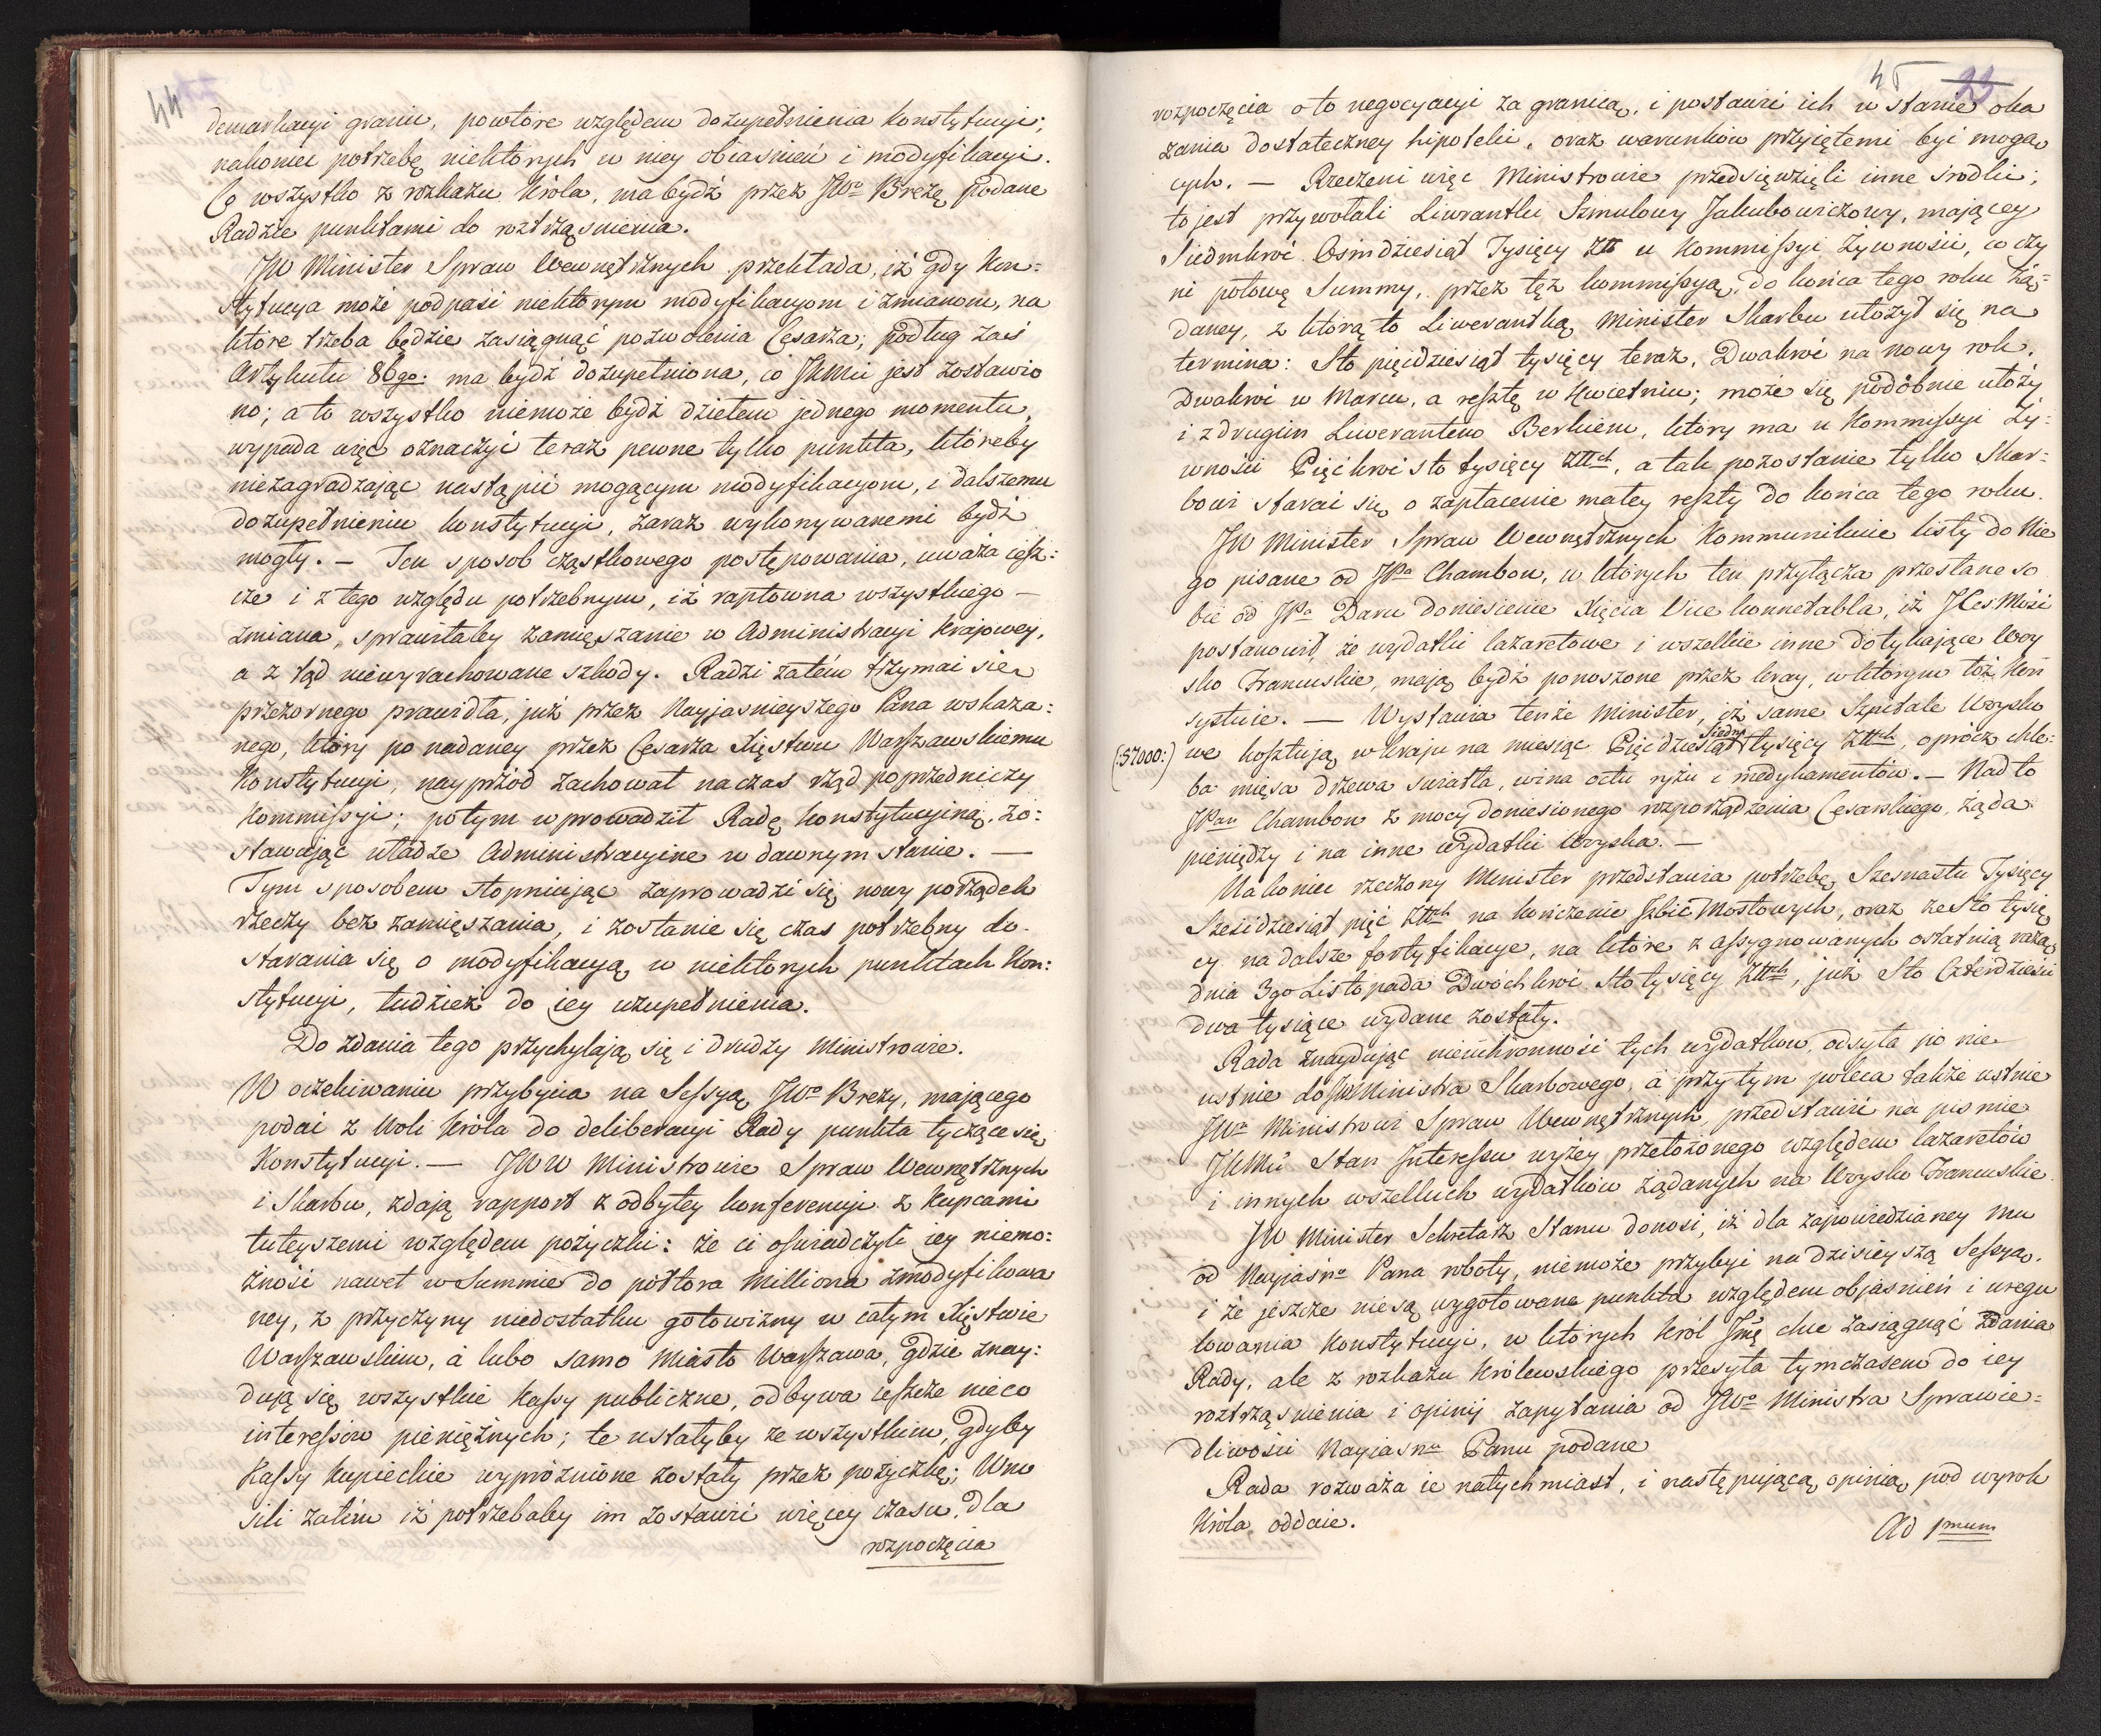 44
demarkacyi granic, powtore względem dozupełnienia Konstytucyi;
nakoniec potrzebę niektorych w niey obiasnień i modyfikacyi.
Co wszystko z rozkazu Króla, ma bydź przez JWo Brezę podane
Radzie punktami do roztrząsnienia.
JW Minister Spraw Wewnętrznych przekłada, iż gdy Kon:
stytucya może podpaść niektorym modyfikacyom i zmianom, na
ktore trzeba będzie zasiągnąć pozwolenia Cesarza; podług zaś
Artykułu 86go. ma bydź dozupełniona, co JKMci jest zostawio
no; a to wszystko niemoże bydź dziełem jednego momentu,
wypada więc oznaczyć teraz pewne tylko punkta, któreby
niezagradzając nastąpić mogącym modyfikacyom, i dalszemu
dozupełnieniu konstytucyi, zaraz wykonywanemi bydź
mogły. – Ten sposob cząstkowego postępowania, uważa iesz:
cze i z tego względu potrzebnym, iż raptowna wszystkiego –
zmiana, sprawiłaby zamięszanie w Administracyi Krajowey,
a z tąd niewyrachowane szkody. Radzi zatém trzymać się
przezornego prawidła, już przez Nayjasnieyszego Pana wskaza:
nego, który po nadaney przez Cesarza Xięstwu Warszawskiemu
Konstytucyi, nayprzód zachował na czas rząd poprzedniczy
Kommissyi; potym wprowadził Radę Konstytucyiną, zo:
stawując władze Administracyine w dawnym stanie. –
Tym sposobem stopniując zaprowadzi się nowy porządek
rzeczy bez zamięszania, i zostanie się czas potrzebny do
starania się o modyfikacyą w niektorych punktach Kon:
stytucyi, tudzież do iey uzupełnienia.
Do zdania tego przychylają się i drudzy Ministrowie.
W oczekiwaniu przybycia na Sessyą JWo Brezy, mającego
podać z Woli Króla do deliberacyi Rady punkta tyczące się
Konstytucyi. – JWW Ministrowie Spraw Wewnętrznych
i Skarbu, zdają rapport z odbytey konferencyi z Kupcami
tuteyszemi względem pożyczki: że ci oświadczyli iey niemo:
żność nawet w Summie do półtora Milliona zmodyfikowa
ney, z przyczyny niedostatku gotowizny w całym Xięstwie
Warszawskim, á lubo samo Miasto Warszawa, gdzie znay:
dują się wszystkie Kassy publiczne, odbywa ieszcze nieco
interessów pieniężnych; te ustałyby ze wszystkim, gdyby
Kassy Kupieckie wypróżnione zostały przez pożyczkę; Wno
sili zatém iż potrzebaby im zostawić więcey czasu, dla
rozpoczęcia
45 23
rozpoczęcia o to negocyacyi za granicą, i postawić ich w stanie oka
zania dostateczney hipoteki, oraz warunków przyiętemi być mogą
cych. – Rzeczeni więc Ministrowie przedsięwzięli inne środki;
to jest przywołali Liwrantki Szmulowy Jakubowiczowy, mającey
Siedmkroć Ośmdziesiąt Tysięcy Złł u Kommissyi Żywności, co czy
ni połowę Summy, przez tęż kommissyą, do końca tego roku żą:
daney, z którą to Liwerantką Minister Skarbu ułożył się na
termina: Sto pięćdziesiąt tysięcy teraz, Dwakroć na nowy rok,
Dwakroć w Marcu, a resztę w Kwietniu; może się podobnie ułoży
i z drugim Liwerantem Berkiem, który ma u Kommissyi Ży:
wności Pięćkroć sto tysięcy Złłch, a tak pozostanie tylko Skar:
bowi starać się o zapłacenie małey reszty do końca tego roku.
JW Minister Spraw Wewnętrznych Kommunikuie listy do Nie
go pisane od JPa Chambon, w których ten przyłącza przesłane so
bie od JPa Daru doniesienie Xięcia Vice konnetabla, iż JCes Mość
postanowił, że wydatki lazaretowe i wszelkie inne dotykające Woy
sko Francuskie, mają bydź ponoszone przez kray, w którym toż kon
systuie. – Wystawia tenże Minister, iż same Szpitale Woysko
(:57000:) we kosztują w kraju na miesiąc Pięćdziesiąt Siedm tysięcy Złłch, oprócz chle:
ba mięsa drzewa swiatła, wina octu ryżu i medykamentów. – Nadto
JPan Chambon z mocy doniesionego rozporządzenia Cesarskiego, żąda
pieniędzy i na inne Wydatki Woyska. –
Nakoniec rzeczony Minister przedstawia potrzebę Szesnastu Tysięcy
Sześćdziesiąt pięć Złłch na kończenie Izbic Mostowych, oraz ze Sto tysię
cy na dalsze fortyfikacye, na które z assygnowanych ostatnią razą
dnia 3go Listopada Dwóchkroć Stotysięcy Złłch, już Sto Czterdzieści
dwa tysiące wydane zostały.
Rada znayduiąc nieuchronność tych wydatkow, odsyła po nie
ustnie do JW Ministra Skarbowego, á przytym poleca także ustnie
JWu Ministrowi Spraw Wewnętrznych, przedstawić na pismie
JKMci Stan Interessu wyżey przełożonego względem lazaretów
i innych wszelkich wydatków żądanych na Woysko Francuskie.
JW Minister Sekretarz Stanu donosi, iż dla zapowiedzianey mu
od Nayiasno Pana roboty, niemoże przybyć na dzisieyszą Sessyą,
i że jeszcze niesą wygotowane punkta względem objasnień i uregu
lowania Konstytucyi, w których Król Jmć chce zasiągnąć zdania
Rady, ale z rozkazu Królewskiego przesyła tymczasem do iey
roztrząsnienia i opinij zapytania od JWo Ministra Sprawie=
dliwości Nayiasnu Panu podane
Rada rozważa ie natychmiast, i następującą opinią, pod wyrok
Króla oddaie.
Ad 1mum